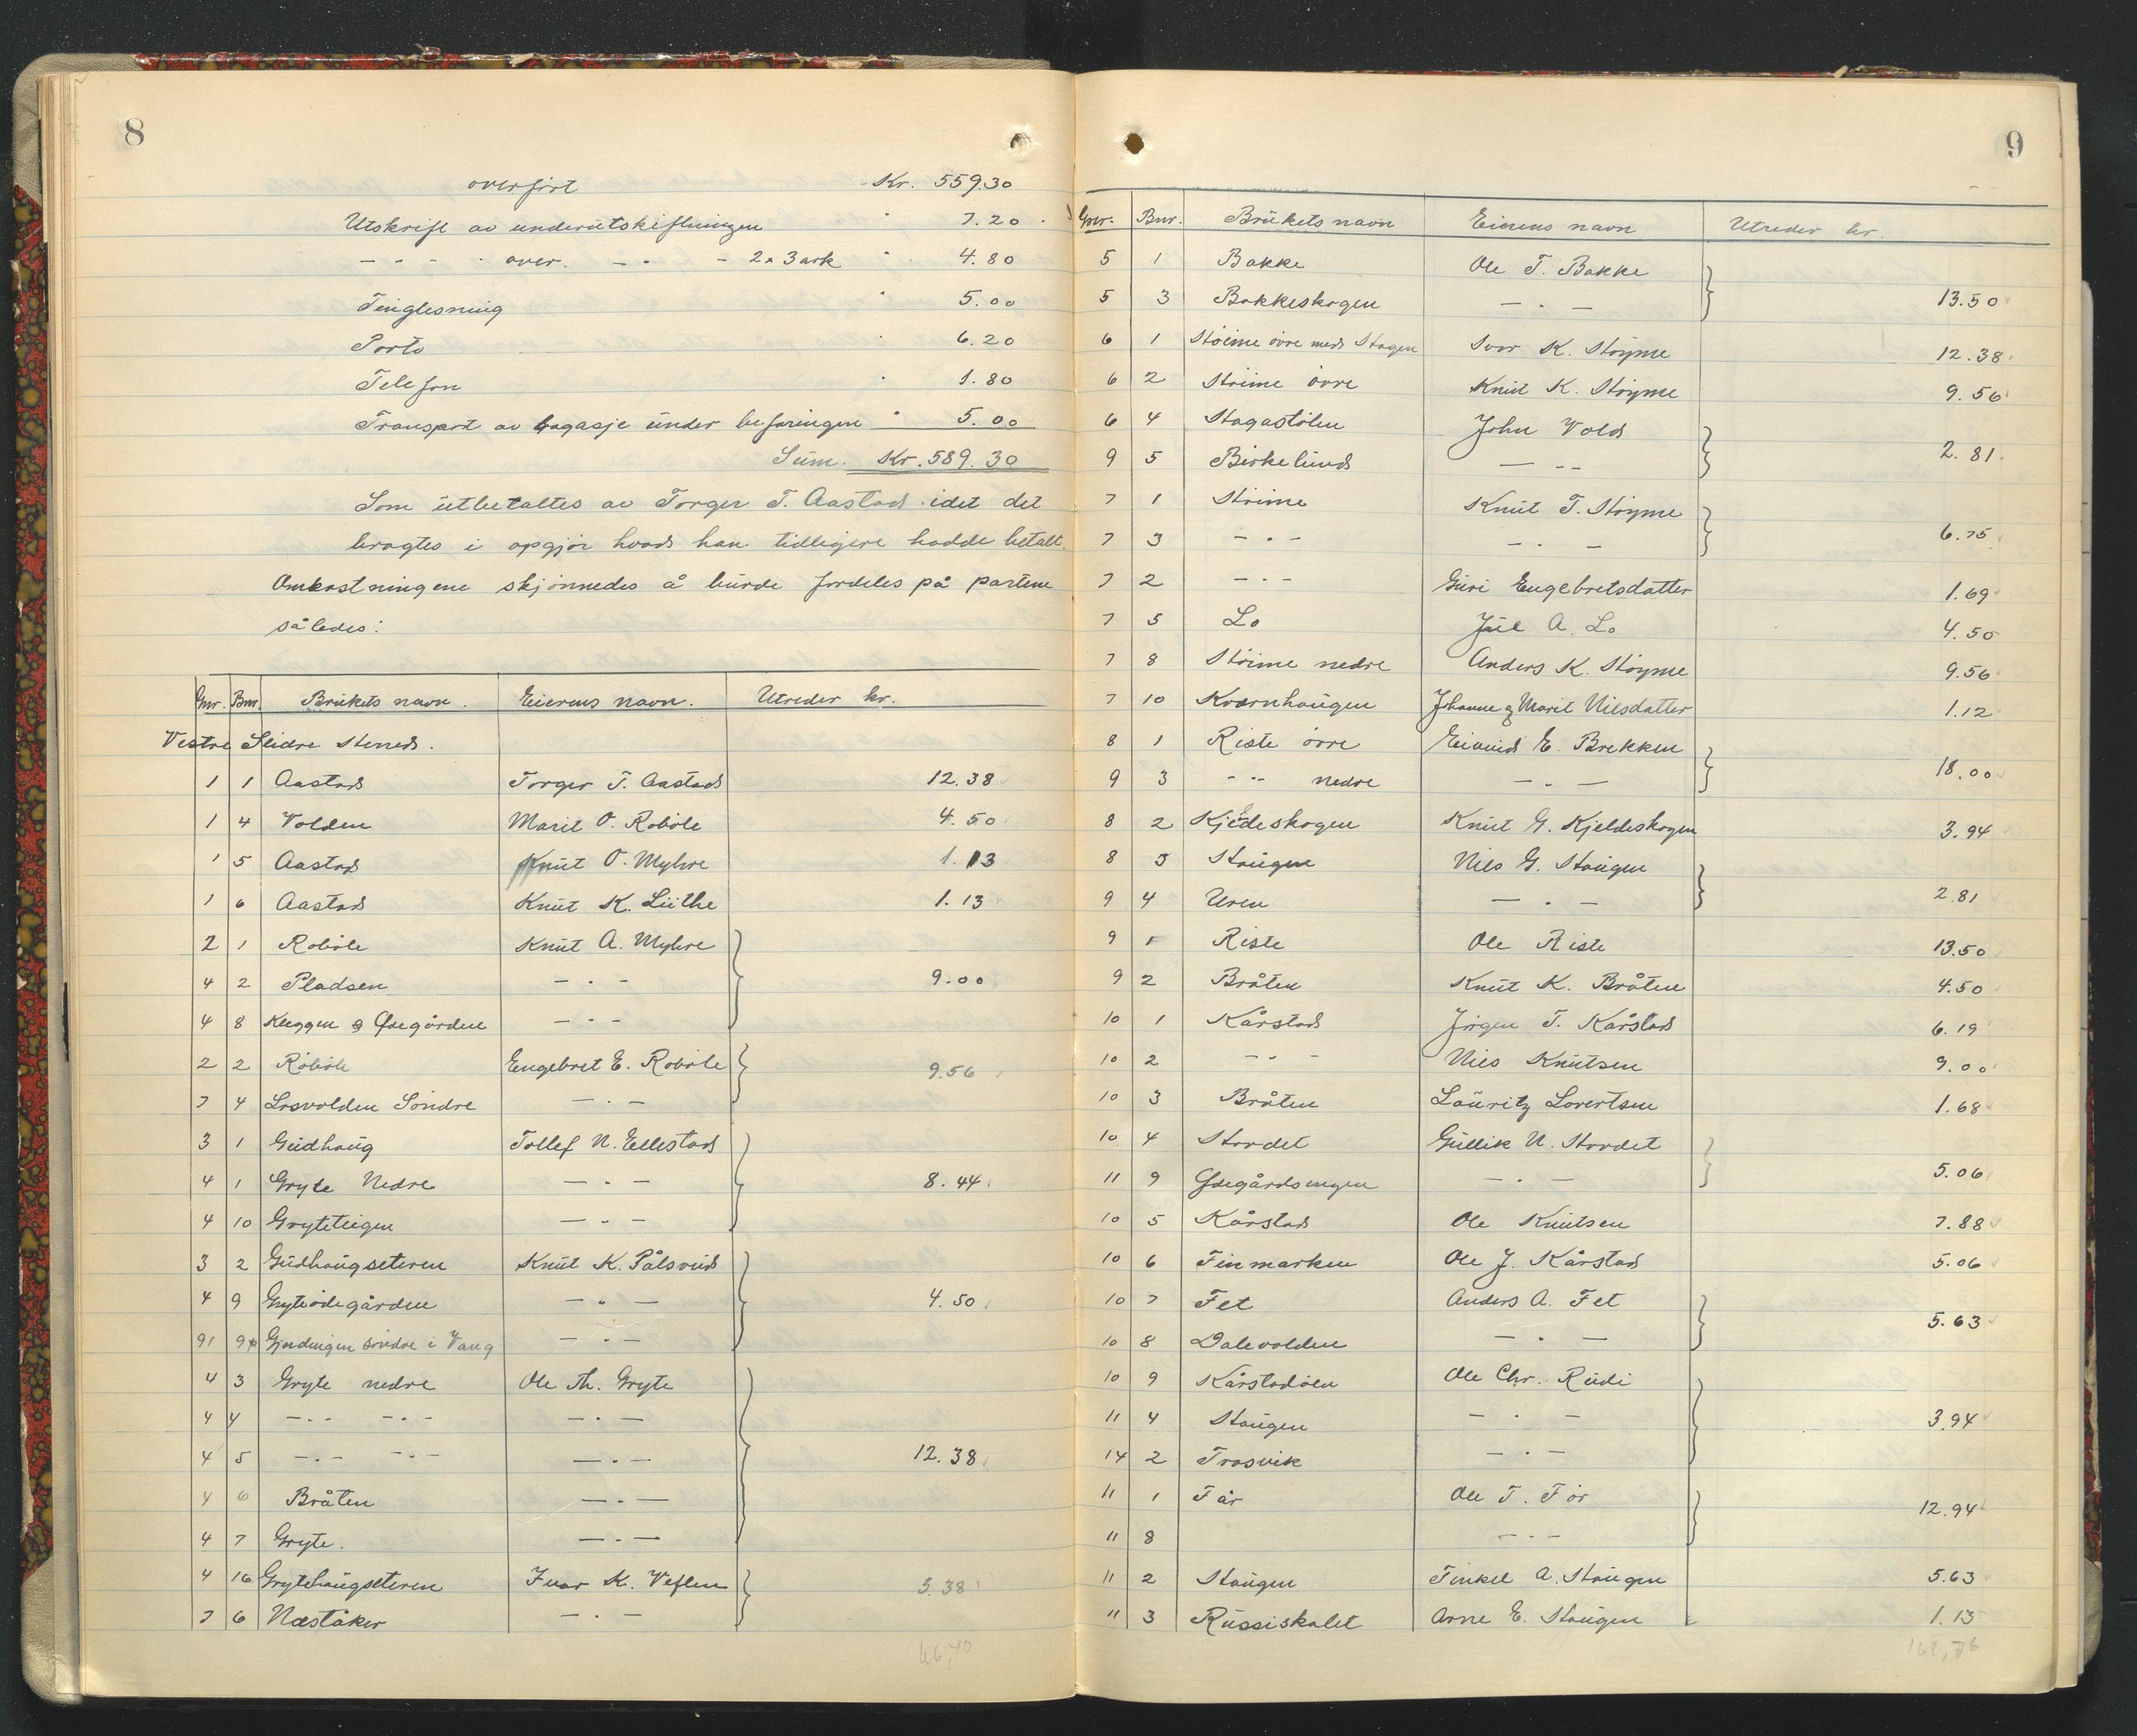 8
overført Kr. 559.30
Utskrift av underutskiftningen " 7.20
— " — " over. — " — 2 x 3 ark " 4.80
Tinglesning " 5.00
Porto " 6.20
Telefon " 1.80
Transport av bagasje under befaringen " 5.00
Sum. Kr. 589.30
Som utbetaltes av Torger T. Aastad idet det
bragtes i opgjør hvad han tidligere hadde betalt.
Omkostningene skjønnedes å burde fordeles på partene
således:
Gnr. Bnr. Brukets navn. Eierens navn. Utreder kr.
Vestre Slidre Herred.
1 1 Aastad Torger T. Aastad 12.38
1 4 Volden Marit O. Robøle 4.50
1 5 Aastad Knut O. Myhre 1.13
1 6 Aastad Knut K. Luthe 1.13
2 1 Robøle Knut A. Myhre
4 2 Pladsen — " — 9.00
4 8 Kleggen & Ødegården — " —
2 2 Robøle Engebret E. Robøle 9.56
7 4 Losvolden Søndre — " —
3 1 Gudhaug Tollef N. Ellestad
4 1 Gryte Nedre — " — 8.44
4 10 Gryteteigen — " —
3 2 Gudhaugseteren Knut K. Pålsrud
4 9 Gryteødegården — " — 4.50
91 9 Grindingen søndre i Vang — " —
4 3 Gryte nedre Ole Th. Gryte
4 4 — " — — " — — " —
4 5 — " — — " — — " — 12.38
4 6 Bråten — " —
4 7 Gryte. — " —
4 16 Grytehaugseteren Ivar K. Veflen 3.38
7 6 Næståker — " —
66,40
9
Gnr. Bnr. Brukets navn Eierens navn Utreder kr.
5 1 Bakke Ole T. Bakke
5 3 Bakkeskogen — " — 13.50
6 1 Støime øvre med Stagen Ivar K. Støyme 12.38
6 2 Støime øvre Knut K. Støyme 9.56
6 4 Stagastølen John Vold
9 5 Birkelund — " — 2.81
7 1 Støime Knut T. Støyme
7 3 — " — — " — 6.75
7 2 — " — Guri Engebretsdatter 1.69
7 5 Lo Juel A. Lo 4.50
7 8 Støime nedre Anders K. Støyme 9.56
7 10 Kvernhaugen Johanne og Marit Nilsdatter 1.12
8 1 Riste øvre Eivind E. Brekken
9 3 — " — nedre — " — 18.00
8 2 Kjeldeskogen Knut G. Kjeldeskogen 3.94
8 5 Haugen Nils G. Haugen
9 4 Uren — " — 2.81
9 1 Riste Ole Riste 13.50
9 2 Bråten Knut K. Bråten 4.50
10 1 Kårstad Jørgen T. Kårstad 6.19
10 2 — " — Nils Knutsen 9.00
10 3 Bråten Lauritz Lovertsen 1.68
10 4 Hovdet Gullik N. Hovdet
11 9 Ødegårdsengen — " — 5.06
10 5 Kårstad Ole Knutsen 7.88
10 6 Finmarken Ole J. Kårstad 5.06
10 7 Fet Anders A. Fet
10 8 Dalevolden — " — 5.63
10 9 Kårstadøen Ole Chr. Rudi
11 4 Haugen — " — 3.94
14 2 Trosvik — " —
11 1 Før Ole T. Før
11 8 — " — 12.94
11 2 Haugen Tinkel A. Haugen 5.63
11 3 Russiskalet Arne E. Haugen 1.13